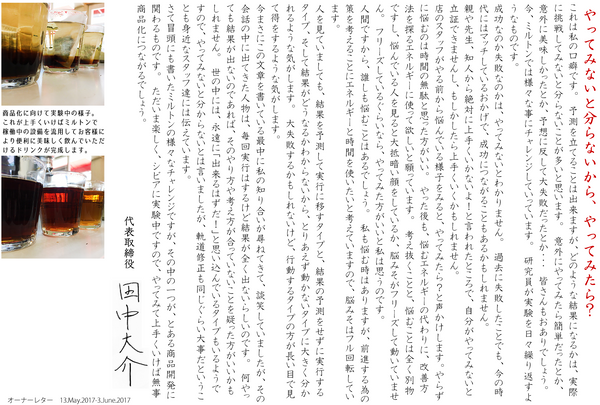 やってみないと分らないから、やってみたら？
これは私の口癖です。 予測を立てることは出来ますが、どのような結果になるかは、実際
に挑戦してみないと分らないことが多いと思います。 意外にやってみたら簡単だったとか、
意外に美味しかったとか、予想に反して大失敗だったとか・・・皆さんもおありでしょう。
今、ミルトンでは様々な事にチャレンジしていってます。 研究員が実験を日々繰り返すよ
うなものです。
成功なのか失敗なのかは、やってみないとわかりません。 過去に失敗したことでも、今の時
代にはマッチしているおかげで、成功につながることもあるかもしれません。
親や先生、知人から絶対に上手くいかないよ！と言われたところで、自分がやってみないと
立証できませんし、もしかしたら上手くいくかもしれません。
店のスタッフがやる前から悩んでいる様子をみると、やってみたら？と声かけします。やらず
に悩むのは時間の無駄と思った方がいい。 やった後も、悩むエネルギーの代わりに、改善方
法を探るエネルギーに使って欲しいと願っています。 考え抜くことと、悩むことは全く別物
ですし、悩んでいる人を見ると大抵暗い顔をしているか、脳みそがフリーズして動いていませ
ん。 フリーズしているぐらいなら、やってみた方がいいと私は思うのです。
人間ですから、誰しも悩むことはあるでしょう。 私も悩む時はありますが、前進する為の
策を考えることにエネルギーと時間を使いたいと考えていますので、脳みそはフル回転してい
ます。
人を見てましても、結果を予測して実行に移すタイプと、結果の予測をせずに実行する
タイプ、そして結果がどうなるかわからないから、とりあえず動かないタイプに大きく分か
れるような気がします。 大失敗するかもしれないけど、行動するタイプの方が長い目で見
て得をするような気がします。
今まさにこの文章を書いている最中に私の知り合いが尋ねてきて、談笑していましたが、その
会話の中に出てきた人物は、毎回実行はするけど結果が全く出ないらしいのです。 何やっ
ても結果が出ないのであれば、そのやり方や考え方が合っていないことを疑った方がいいかも
しれません。 世の中には、永遠に「出来るはずだ！」と思い込んでいるタイプもいるようで
すので、やってみないと分からないとは言いましたが、軌道修正も同じぐらい大事だというこ
とも身近なスタッフ達には伝えています。
さて冒頭にも書いたミルトンの様々なチャレンジですが、その中の一つが、とある商品開発に
関わるものです。 ただいま楽しく、シビアに実験中ですので、やってみて上手くいけば無事
商品化につながるでしょう。
代表取締役 田中大介
商品化に向けて実験中の様子。
これが上手くいけばミルトンで
稼働中の設備を流用してお客様に
より便利に美味しく飲んでいただ
けるドリンクが完成します。
オーナーレター 13,May,2017-3,June,2017